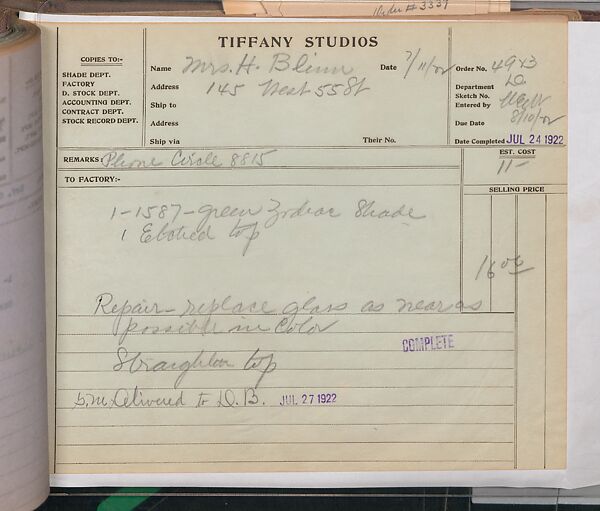 Order # 3337
TIFFANY STUDIOS
COPIES TO:-
SHADE DEPT.
FACTORY
D. STOCK DEPT.
ACCOUNTING DEPT.
CONTRACT DEPT.
STOCK RECORD DEPT.
Name Mrs. H. Blinn Date 7/11/22
Address 145 West 55 St
Ship to
Address
Ship via Their No.
Order No.
Department D.
Sketch No.
Entered by
Due Date 8/10/22
Date Completed JUL 24 1922
REMARKS: Phone Circle 8815
EST. COST
11-
TO FACTORY:-
SELLING PRICE
1-1587-Green Zodiac Shade
1 Etched top
16 00
Repair - replace glass as near as
possible in Color
COMPLETE
Straighten top
Delivered to D. B. JUL 27 1922